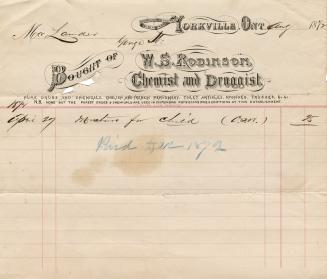 Yorkville, Ont. Aug 1872
Mr Lander
George St.
Bought of W. S. Robinson,
Chemist and Druggist.
PURE DRUGS AND CHEMICALS, ENGLISH AND FRENCH PERFUMERY, TOILET ARTICLES, SPONGES, TRUSSES, &c.
N.B. NONE BUT THE PUREST DRUGS & CHEMICALS ARE USED IN DISPENSING PHYSICIANS PRESCRIPTIONS AT THIS ESTABLISHMENT.
April 27 for child
Paid 1872